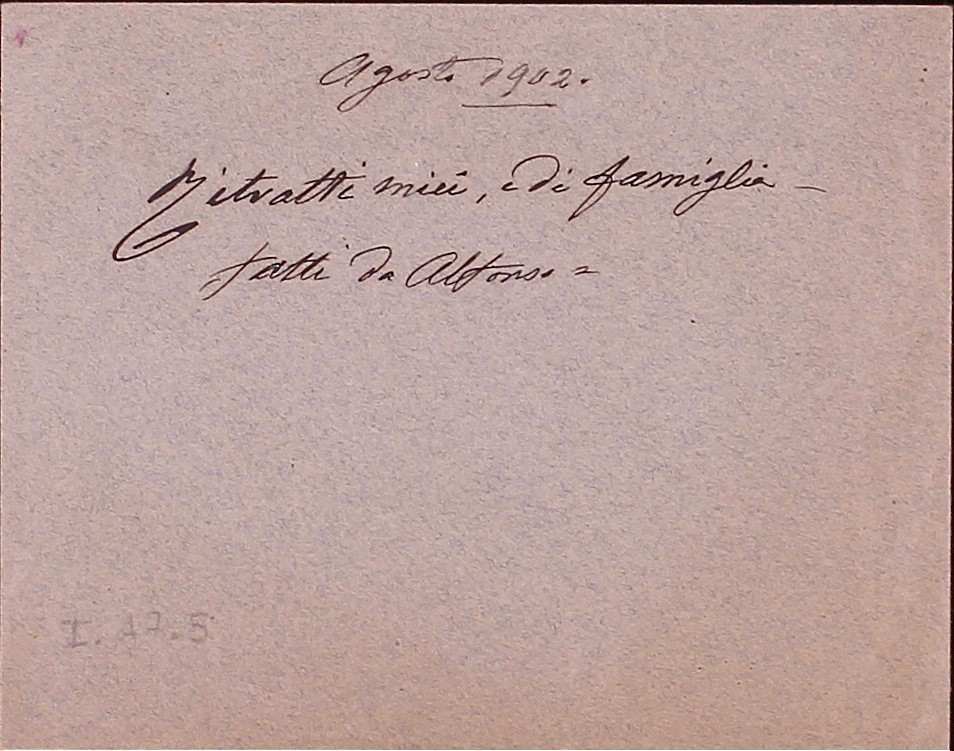 Agosto 1902.
Ritratti miei, e di famiglia –
fatti da Alfonso =
I. 17.5